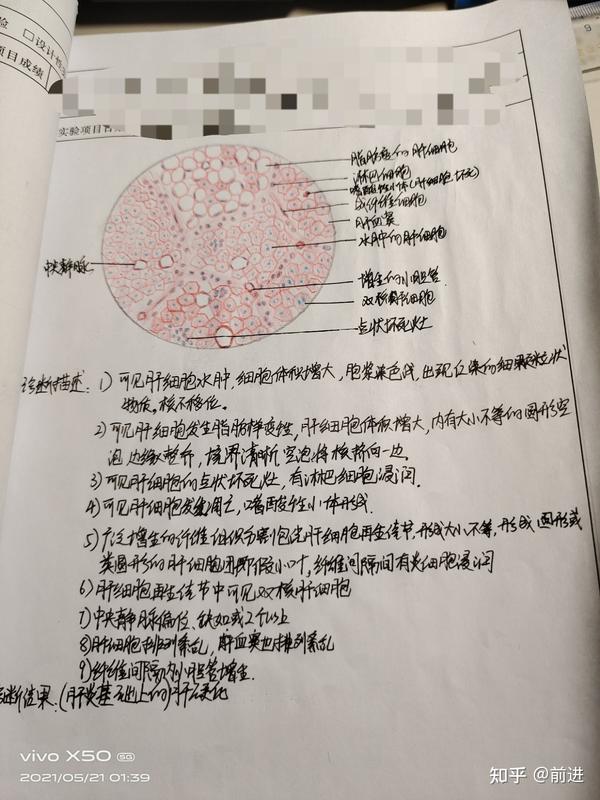 验 □设计性
项目成绩
实验项目名称
脂肪变的肝细胞
淋巴细胞
嗜酸性小体(肝细胞坏死)
成纤维细胞
肝血窦
水肿的肝细胞
中央静脉
增生的小胆管
双核肝细胞
点状坏死灶
诊断描述: 1) 可见肝细胞水肿,细胞体积增大,胞浆染色浅,出现红染的细颗粒状
物质。核不移位。
2) 可见肝细胞发生脂肪样变性,肝细胞体积增大,内有大小不等的圆形空
泡,边缘整齐,境界清晰,空泡将核挤向一边。
3) 可见肝细胞的点状坏死灶,有淋巴细胞浸润。
4) 可见肝细胞发生凋亡,嗜酸性小体形成.
5) 广泛增生的纤维组织分割包绕肝细胞再生结节,形成大小不等,形成圆形或
类圆形的肝细胞团即假小叶,纤维间隔间有炎细胞浸润
6) 肝细胞再生结节中可见双核肝细胞
7) 中央静脉偏位、缺如或2个以上
8) 肝细胞排列紊乱,肝血窦也排列紊乱
9) 纤维间隔内小胆管增生.
诊断结果:(肝炎基础上的)肝硬化
vivo X50 5G
2021/05/21 01:39
知乎 @前进